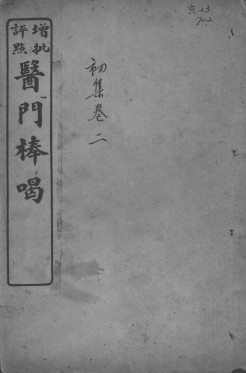 增批
評點
醫門棒喝
初集卷二